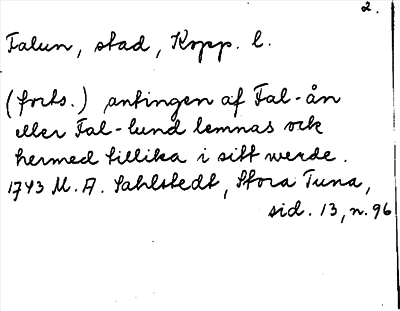 2.
Falun, stad, Kopp. l.
(forts.) antingen af Fal-ån
eller Fal-lund lemnas ock
hermed tillika i sitt werde.
1743 M. A. Sahlstedt, Stora Tuna,
sid. 13, n. 96